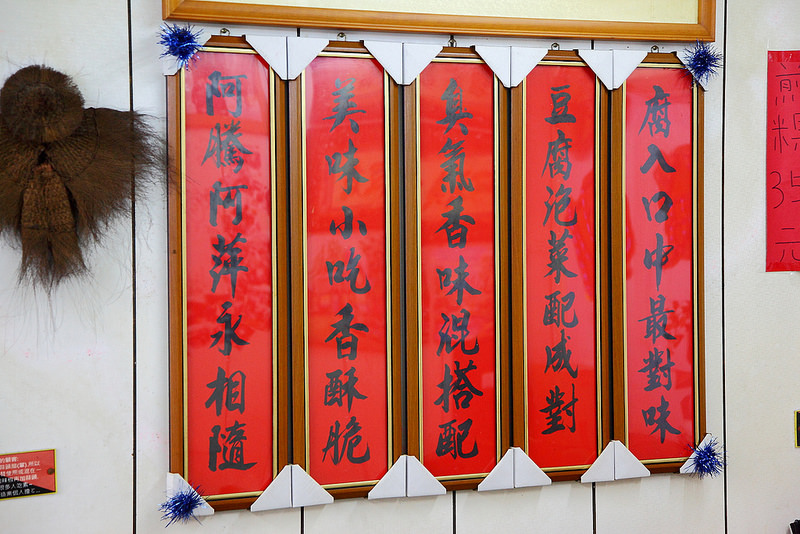 阿騰阿萍永相隨
美味小吃香酥脆
臭氣香味混搭配
豆腐泡菜配成對
腐入口中最對味